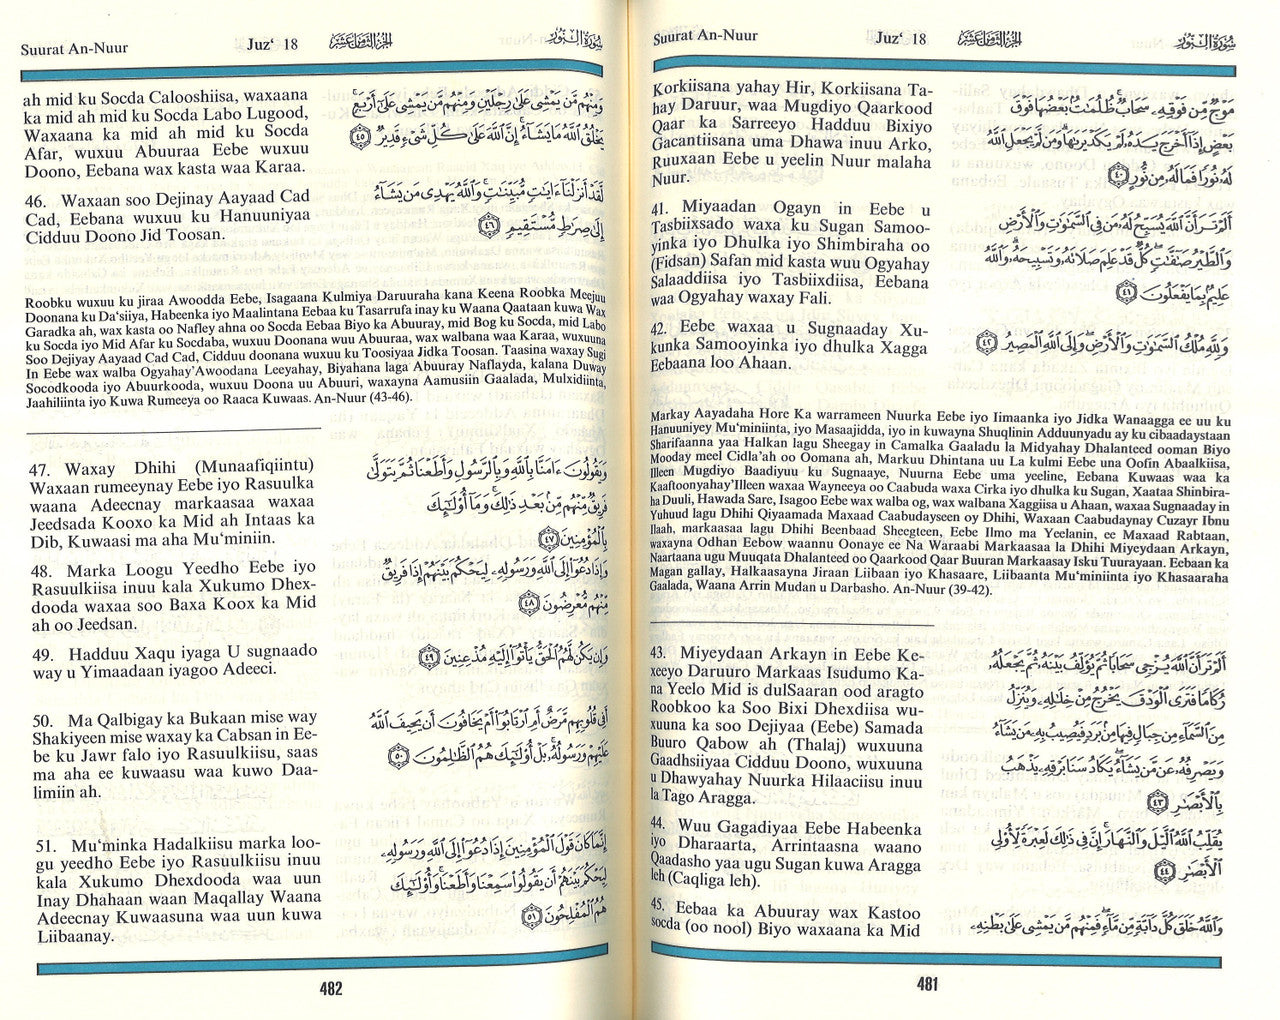 Suurat An-Nuur
Juz‘ 18
الجزء الثامن عشر
سورة النور
Korkiisana yahay Hir, Korkiisana Ta-
hay Daruur, waa Mugdiyo Qaarkood
Qaar ka Sarreeyo Hadduu Bixiyo
Gacantiisana uma Dhawa inuu Arko,
Ruuxaan Eebe u yeelin Nuur malaha
Nuur.
مَوْجٌ مِّن فَوْقِهِۦ سَحَابٌ ظُلُمَٰتٌۢ بَعْضُهَا فَوْقَ
بَعْضٍ إِذَآ أَخْرَجَ يَدَهُۥ لَمْ يَكَدْ يَرَىٰهَا وَمَن لَّمْ يَجْعَلِ ٱللَّهُ
لَهُۥ نُورًا فَمَا لَهُۥ مِن نُّورٍ ٤٠
41. Miyaadan Ogayn in Eebe u
Tasbiixsado waxa ku Sugan Samoo-
yinka iyo Dhulka iyo Shimbiraha oo
(Fidsan) Safan mid kasta wuu Ogyahay
Salaaddiisa iyo Tasbiixdiisa, Eebana
waa Ogyahay waxay Fali.
أَلَمْ تَرَ أَنَّ ٱللَّهَ يُسَبِّحُ لَهُۥ مَن فِى ٱلسَّمَٰوَٰتِ وَٱلْأَرْضِ
وَٱلطَّيْرُ صَٰٓفَّٰتٍ كُلٌّ قَدْ عَلِمَ صَلَاتَهُۥ وَتَسْبِيحَهُۥ وَٱللَّهُ
عَلِيمٌۢ بِمَا يَفْعَلُونَ ٤١
42. Eebe waxaa u Sugnaaday Xu-
kunka Samooyinka iyo dhulka Xagga
Eebaana loo Ahaan.
وَلِلَّهِ مُلْكُ ٱلسَّمَٰوَٰتِ وَٱلْأَرْضِ وَإِلَى ٱللَّهِ ٱلْمَصِيرُ ٤٢
Markay Aayadaha Hore Ka warrameen Nuurka Eebe iyo Iimaanka iyo Jidka Wanaagga ee uu ku
Hanuuniyey Mu‘miniinta, iyo Masaajidda, iyo in kuwayna Shuqlinin Adduunyadu ay ku cibaadaystaan
Sharifaanna yaa Halkan lagu Sheegay in Camalka Gaaladu la Midyahay Dhalanteed ooman Biyo
Mooday meel Cidla’ah oo Oomana ah, Markuu Dhintana uu La kulmi Eebe una Oofin Abaalkiisa,
Illeen Mugdiyo Baadiyuu ku Sugnaaye, Nuurna Eebe uma yeeline, Eebana Kuwaas waa ka
Kaaftoonyahay’Illeen waxaa Wayneeya oo Caabuda waxa Cirka iyo dhulka ku Sugan, Xaataa Shinbira-
ha Duuli, Hawada Sare, Isagoo Eebe wax walba og, wax walbana Xaggiisa u Ahaan, waxaa Sugnaaday in
Yuhuud lagu Dhihi Qiyaamada Maxaad Caabudayseen oy Dhihi, Waxaan Caabudaynay Cuzayr Ibnu
Ilaah, markaasaa lagu Dhihi Beenbaad Sheegteen, Eebe Ilmo ma Yeelanin, ee Maxaad Rabtaan,
waxayna Odhan Eebow waannu Oonaye ee Na Waraabi Markaasaa la Dhihi Miyeydaan Arkayn,
Naartaana ugu Muuqata Dhalanteed oo Qaarkood Qaar Buuran Markaasay Isku Tuurayaan. Eebaan ka
Magan gallay, Halkaasayna Jiraan Liibaan iyo Khasaare, Liibaanta Mu‘miniinta iyo Khasaaraha
Gaalada, Waana Arrin Mudan u Darbasho. An-Nuur (39-42).
43. Miyeydaan Arkayn in Eebe Ke-
xeeyo Daruuro Markaas Isudumo Ka-
na Yeelo Mid is dulSaaran ood aragto
Roobkoo ka Soo Bixi Dhexdiisa wu-
xuuna ka soo Dejiyaa (Eebe) Samada
Buuro Qabow ah (Thalaj) wuxuuna
Gaadhsiiyaa Cidduu Doono, wuxuuna
u Dhawyahay Nuurka Hilaaciisu inuu
la Tago Aragga.
أَلَمْ تَرَ أَنَّ ٱللَّهَ يُزْجِى سَحَابًا ثُمَّ يُؤَلِّفُ بَيْنَهُۥ ثُمَّ يَجْعَلُهُۥ
رُكَامًا فَتَرَى ٱلْوَدْقَ يَخْرُجُ مِنْ خِلَٰلِهِۦ وَيُنَزِّلُ
مِنَ ٱلسَّمَآءِ مِن جِبَالٍ فِيهَا مِنۢ بَرَدٍ فَيُصِيبُ بِهِۦ مَن يَشَآءُ
وَيَصْرِفُهُۥ عَن مَّن يَشَآءُ يَكَادُ سَنَا بَرْقِهِۦ يَذْهَبُ
بِٱلْأَبْصَٰرِ ٤٣
44. Wuu Gagadiyaa Eebe Habeenka
iyo Dharaarta, Arrintaasna waano
Qaadasho yaa ugu Sugan kuwa Aragga
leh (Caqliga leh).
يُقَلِّبُ ٱللَّهُ ٱلَّيْلَ وَٱلنَّهَارَ إِنَّ فِى ذَٰلِكَ لَعِبْرَةً لِّأُو۟لِى
ٱلْأَبْصَٰرِ ٤٤
45. Eebaa ka Abuuray wax Kastoo
socda (oo nool) Biyo waxaana ka Mid
وَٱللَّهُ خَلَقَ كُلَّ دَآبَّةٍ مِّن مَّآءٍ فَمِنْهُم مَّن يَمْشِى عَلَىٰ بَطْنِهِۦ
481
Suurat An-Nuur
Juz‘ 18
الجزء الثامن عشر
سورة النور
ah mid ku Socda Calooshiisa, waxaana
ka mid ah mid ku Socda Labo Lugood,
Waxaana ka mid ah mid ku Socda
Afar, wuxuu Abuuraa Eebe wuxuu
Doono, Eebana wax kasta waa Karaa.
وَمِنْهُم مَّن يَمْشِى عَلَىٰ رِجْلَيْنِ وَمِنْهُم مَّن يَمْشِى عَلَىٰٓ أَرْبَعٍ
يَخْلُقُ ٱللَّهُ مَا يَشَآءُ إِنَّ ٱللَّهَ عَلَىٰ كُلِّ شَىْءٍ قَدِيرٌ ٤٥
46. Waxaan soo Dejinay Aayaad Cad
Cad, Eebana wuxuu ku Hanuuniyaa
Cidduu Doono Jid Toosan.
لَّقَدْ أَنزَلْنَآ ءَايَٰتٍ مُّبَيِّنَٰتٍ وَٱللَّهُ يَهْدِى مَن يَشَآءُ
إِلَىٰ صِرَٰطٍ مُّسْتَقِيمٍ ٤٦
Roobku wuxuu ku jiraa Awoodda Eebe, Isagaana Kulmiya Daruuraha kana Keena Roobka Meejuu
Doonana ku Da‘siiya, Habeenka iyo Maalintana Eebaa ku Tasarrufa inay ku Waana Qaataan kuwa Wax
Garadka ah, wax kasta oo Nafley ahna oo Socda Eebaa Biyo ka Abuuray, mid Bog ku Socda, mid Labo
ku Socda iyo Mid Afar ku Socdaba, wuxuu Doonana wuu Abuuraa, wax walbana waa Karaa, wuxuuna
Soo Dejiyay Aayaad Cad Cad, Cidduu doonana wuxuu ku Toosiyaa Jidka Toosan. Taasina waxay Sugi
In Eebe wax walba Ogyahay’Awoodana Leeyahay, Biyahana laga Abuuray Naflayda, kalana Duway
Socodkooda iyo Abuurkooda, wuxuu Doona uu Abuuri, waxayna Aamusiin Gaalada, Mulxidiinta,
Jaahiliinta iyo Kuwa Rumeeya oo Raaca Kuwaas. An-Nuur (43-46).
47. Waxay Dhihi (Munaafiqiintu)
Waxaan rumeeynay Eebe iyo Rasuulka
waana Adeecnay markaasaa waxaa
Jeedsada Kooxo ka Mid ah Intaas ka
Dib, Kuwaasi ma aha Mu‘miniin.
وَيَقُولُونَ ءَامَنَّا بِٱللَّهِ وَبِٱلرَّسُولِ وَأَطَعْنَا ثُمَّ يَتَوَلَّىٰ
فَرِيقٌ مِّنْهُم مِّنۢ بَعْدِ ذَٰلِكَ وَمَآ أُو۟لَٰٓئِكَ
بِٱلْمُؤْمِنِينَ ٤٧
48. Marka Loogu Yeedho Eebe iyo
Rasuulkiisa inuu kala Xukumo Dhex-
dooda waxaa soo Baxa Koox ka Mid
ah oo Jeedsan.
وَإِذَا دُعُوٓا۟ إِلَى ٱللَّهِ وَرَسُولِهِۦ لِيَحْكُمَ بَيْنَهُمْ إِذَا فَرِيقٌ
مِّنْهُم مُّعْرِضُونَ ٤٨
49. Hadduu Xaqu iyaga U sugnaado
way u Yimaadaan iyagoo Adeeci.
وَإِن يَكُن لَّهُمُ ٱلْحَقُّ يَأْتُوٓا۟ إِلَيْهِ مُذْعِنِينَ ٤٩
50. Ma Qalbigay ka Bukaan mise way
Shakiyeen mise waxay ka Cabsan in Ee-
be ku Jawr falo iyo Rasuulkiisu, saas
ma aha ee kuwaasu waa kuwo Daa-
limiin ah.
أَفِى قُلُوبِهِم مَّرَضٌ أَمِ ٱرْتَابُوٓا۟ أَمْ يَخَافُونَ أَن يَحِيفَ ٱللَّهُ
عَلَيْهِمْ وَرَسُولُهُۥ بَلْ أُو۟لَٰٓئِكَ هُمُ ٱلظَّٰلِمُونَ ٥٠
51. Mu‘minka Hadalkiisu marka loo-
gu yeedho Eebe iyo Rasuulkiisu inuu
kala Xukumo Dhexdooda waa uun
Inay Dhahaan waan Maqallay Waana
Adeecnay Kuwaasuna waa uun kuwa
Liibaanay.
إِنَّمَا كَانَ قَوْلَ ٱلْمُؤْمِنِينَ إِذَا دُعُوٓا۟ إِلَى ٱللَّهِ وَرَسُولِهِۦ
لِيَحْكُمَ بَيْنَهُمْ أَن يَقُولُوا۟ سَمِعْنَا وَأَطَعْنَا وَأُو۟لَٰٓئِكَ
هُمُ ٱلْمُفْلِحُونَ ٥١
482